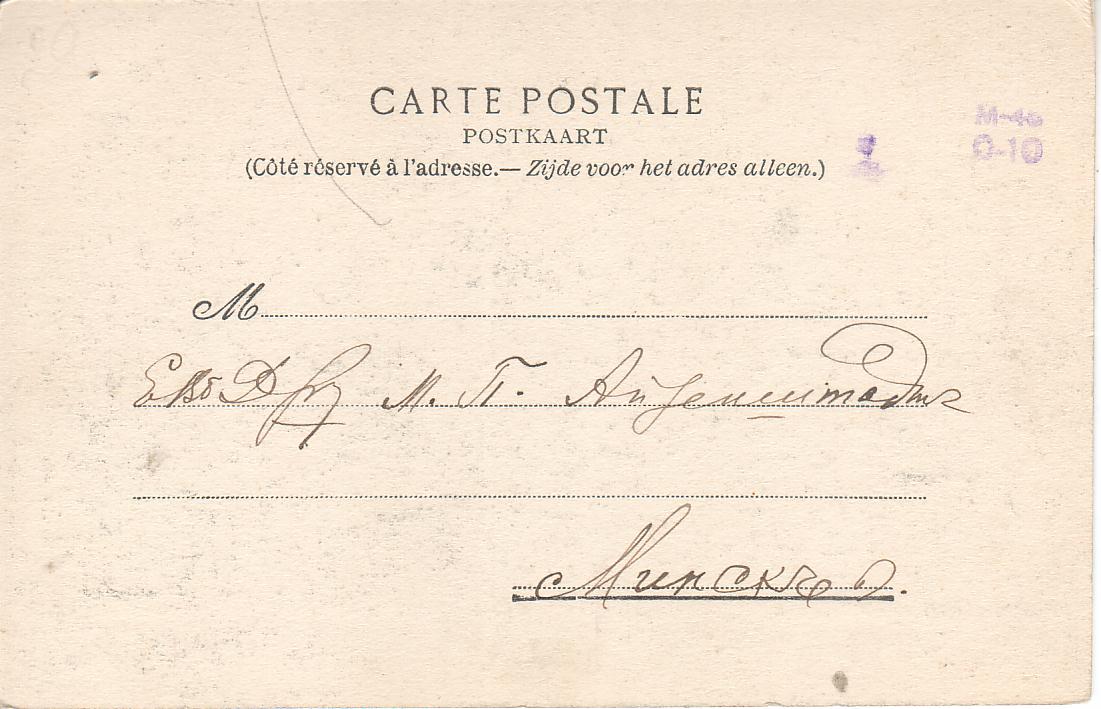 CARTE POSTALE
POSTKAART
(Côté réservé à l'adresse.— Zijde voor het adres alleen.)
M-46
O-10
M
Евб Д М. П.
Минскъ